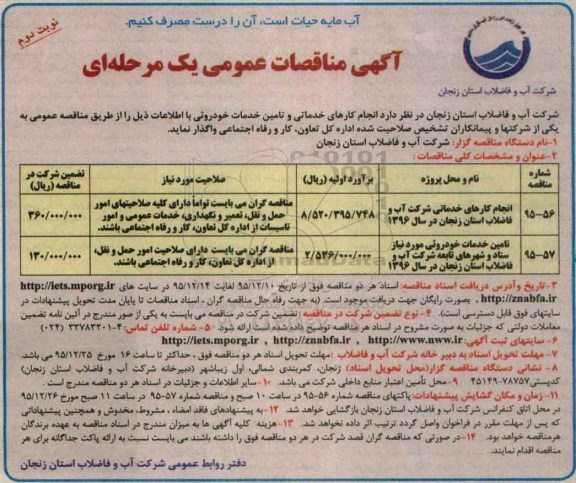 آب مایه حیات است، آن را درست مصرف کنیم.
نوبت دوم
آگهی مناقصات عمومی یک مرحله‌ای
شرکت آب و فاضلاب استان زنجان
شرکت آب و فاضلاب استان زنجان در نظر دارد انجام کارهای خدماتی و تامین خدمات خودروئی با اطلاعات ذیل را از طریق مناقصه عمومی به
یکی از شرکتها و پیمانکاران تشخیص صلاحیت شده اداره کل تعاون، کار و رفاه اجتماعی واگذار نماید.
۱-نام دستگاه مناقصه گزار: شرکت آب و فاضلاب استان زنجان
۲-عنوان و مشخصات کلی مناقصات :
شماره مناقصه | نام و محل پروژه | برآورد اولیه (ریال) | صلاحیت مورد نیاز | تضمین شرکت در مناقصه (ریال)
۹۵-۵۶ | انجام کارهای خدماتی شرکت آب و فاضلاب استان زنجان در سال ۱۳۹۶ | ۸/۵۲۰/۳۹۵/۷۴۸ | مناقصه گران می بایست تواماً دارای کلیه صلاحیتهای امور حمل و نقل، تعمیر و نگهداری، خدمات عمومی و امور تاسیسات از اداره کل تعاون، کار و رفاه اجتماعی باشند. | ۳۶۰/۰۰۰/۰۰۰
۹۵-۵۷ | تامین خدمات خودروئی مورد نیاز ستاد و شهرهای تابعه شرکت آب و فاضلاب استان زنجان در سال ۱۳۹۶ | ۲/۵۳۶/۰۰۰/۰۰۰ | مناقصه گران می بایست دارای صلاحیت امور حمل و نقل، از اداره کل تعاون، کار و رفاه اجتماعی باشند. | ۱۳۰/۰۰۰/۰۰۰
۳-تاریخ وآدرس دریافت اسناد مناقصه: اسناد هر دو مناقصه فوق از تاریخ ۹۵/۱۲/۱۰ لغایت ۹۵/۱۲/۱۴ در سایت های http://iets.mporg.ir
, http://znabfa.ir بصورت رایگان جهت دریافت موجود است. (به جهت رفاه حال مناقصه گران ، اسناد مناقصات تا پایان مدت تحویل پیشنهادات در
سایتهای فوق قابل دسترسی است). ۴- نوع تضمین شرکت در مناقصه : تضمین شرکت در مناقصه می بایست به یکی از صور مندرج در آئین نامه تضمین
معاملات دولتی که جزئیات به صورت مشروح در اسناد هر مناقصه توضیح داده شده است ارائه شود. ۵- شماره تلفن تماس: ۴-۳۳۷۸۳۲۰۱ (۰۲۴)
۶- سایتهای ثبت آگهی: http://iets.mporg.ir , http://znabfa.ir , http://www.nww.ir
۷- مهلت تحویل اسناد به دبیر خانه شرکت آب و فاضلاب : مهلت تحویل اسناد هر دو مناقصه فوق ، حداکثر تا ساعت ۱۶ مورخ ۹۵/۱۲/۲۵ می باشد.
۸ - نشانی دستگاه مناقصه گزار(محل تحویل اسناد) زنجان، کمربندی شمالی، اول زیباشهر (دبیرخانه شرکت آب و فاضلاب استان زنجان)
کدپستی۷۸۷۵۷-۴۵۱۴۹ ۹-محل تأمین اعتبار منابع داخلی شرکت می باشد. ۱۰-سایر اطلاعات و جزئیات در اسناد هر دو مناقصه مندرج است .
۱۱- زمان و مکان گشایش پیشنهادات: پاکتهای مناقصه شماره ۵۶-۹۵ در ساعت ۱۰ صبح و مناقصه شماره ۵۷-۹۵ در ساعت ۱۱ صبح مورخ ۹۵/۱۲/۲۶
در محل اتاق کنفرانس شرکت آب و فاضلاب استان زنجان بازگشایی خواهد شد. ۱۲-به پیشنهادهای فاقد امضاء ، مشروط، مخدوش و همچنین پیشنهاداتی
که پس از مهلت مقرر در فراخوان واصل گردد ترتیب اثر داده نخواهد شد. ۱۳-هزینه کلیه آگهی ها به میزان مندرج در اسناد مناقصه به عهده برندگان
هرمناقصه خواهد بود. ۱۴-در صورتی که مناقصه گران قصد شرکت در هر دو مناقصه فوق را داشته باشند می بایست نسبت به ارائه پاکت جداگانه برای هر
مناقصه اقدام نمایند.
دفتر روابط عمومی شرکت آب و فاضلاب استان زنجان